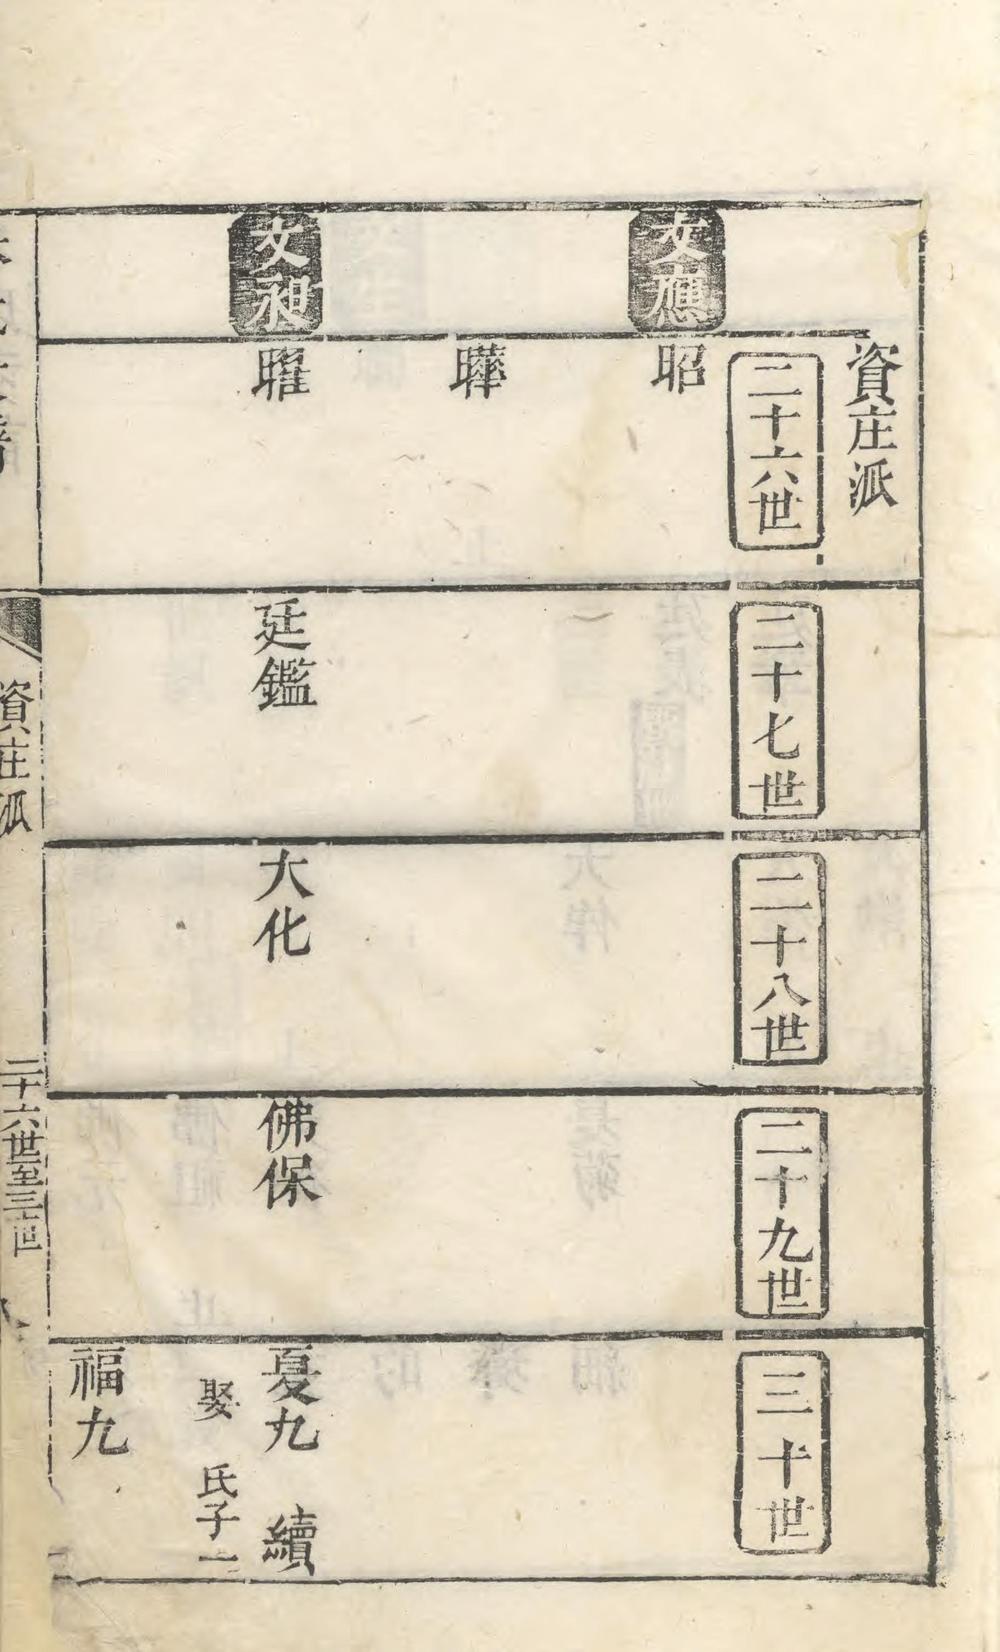 資庄派
二十六世
二十七世
二十八世
二十九世
三十世
文應
昭
曄
文昶
耀
廷鑑
大化
佛保
憂九 續
娶 氏子一
福九
資庄派
二十六世至三十世